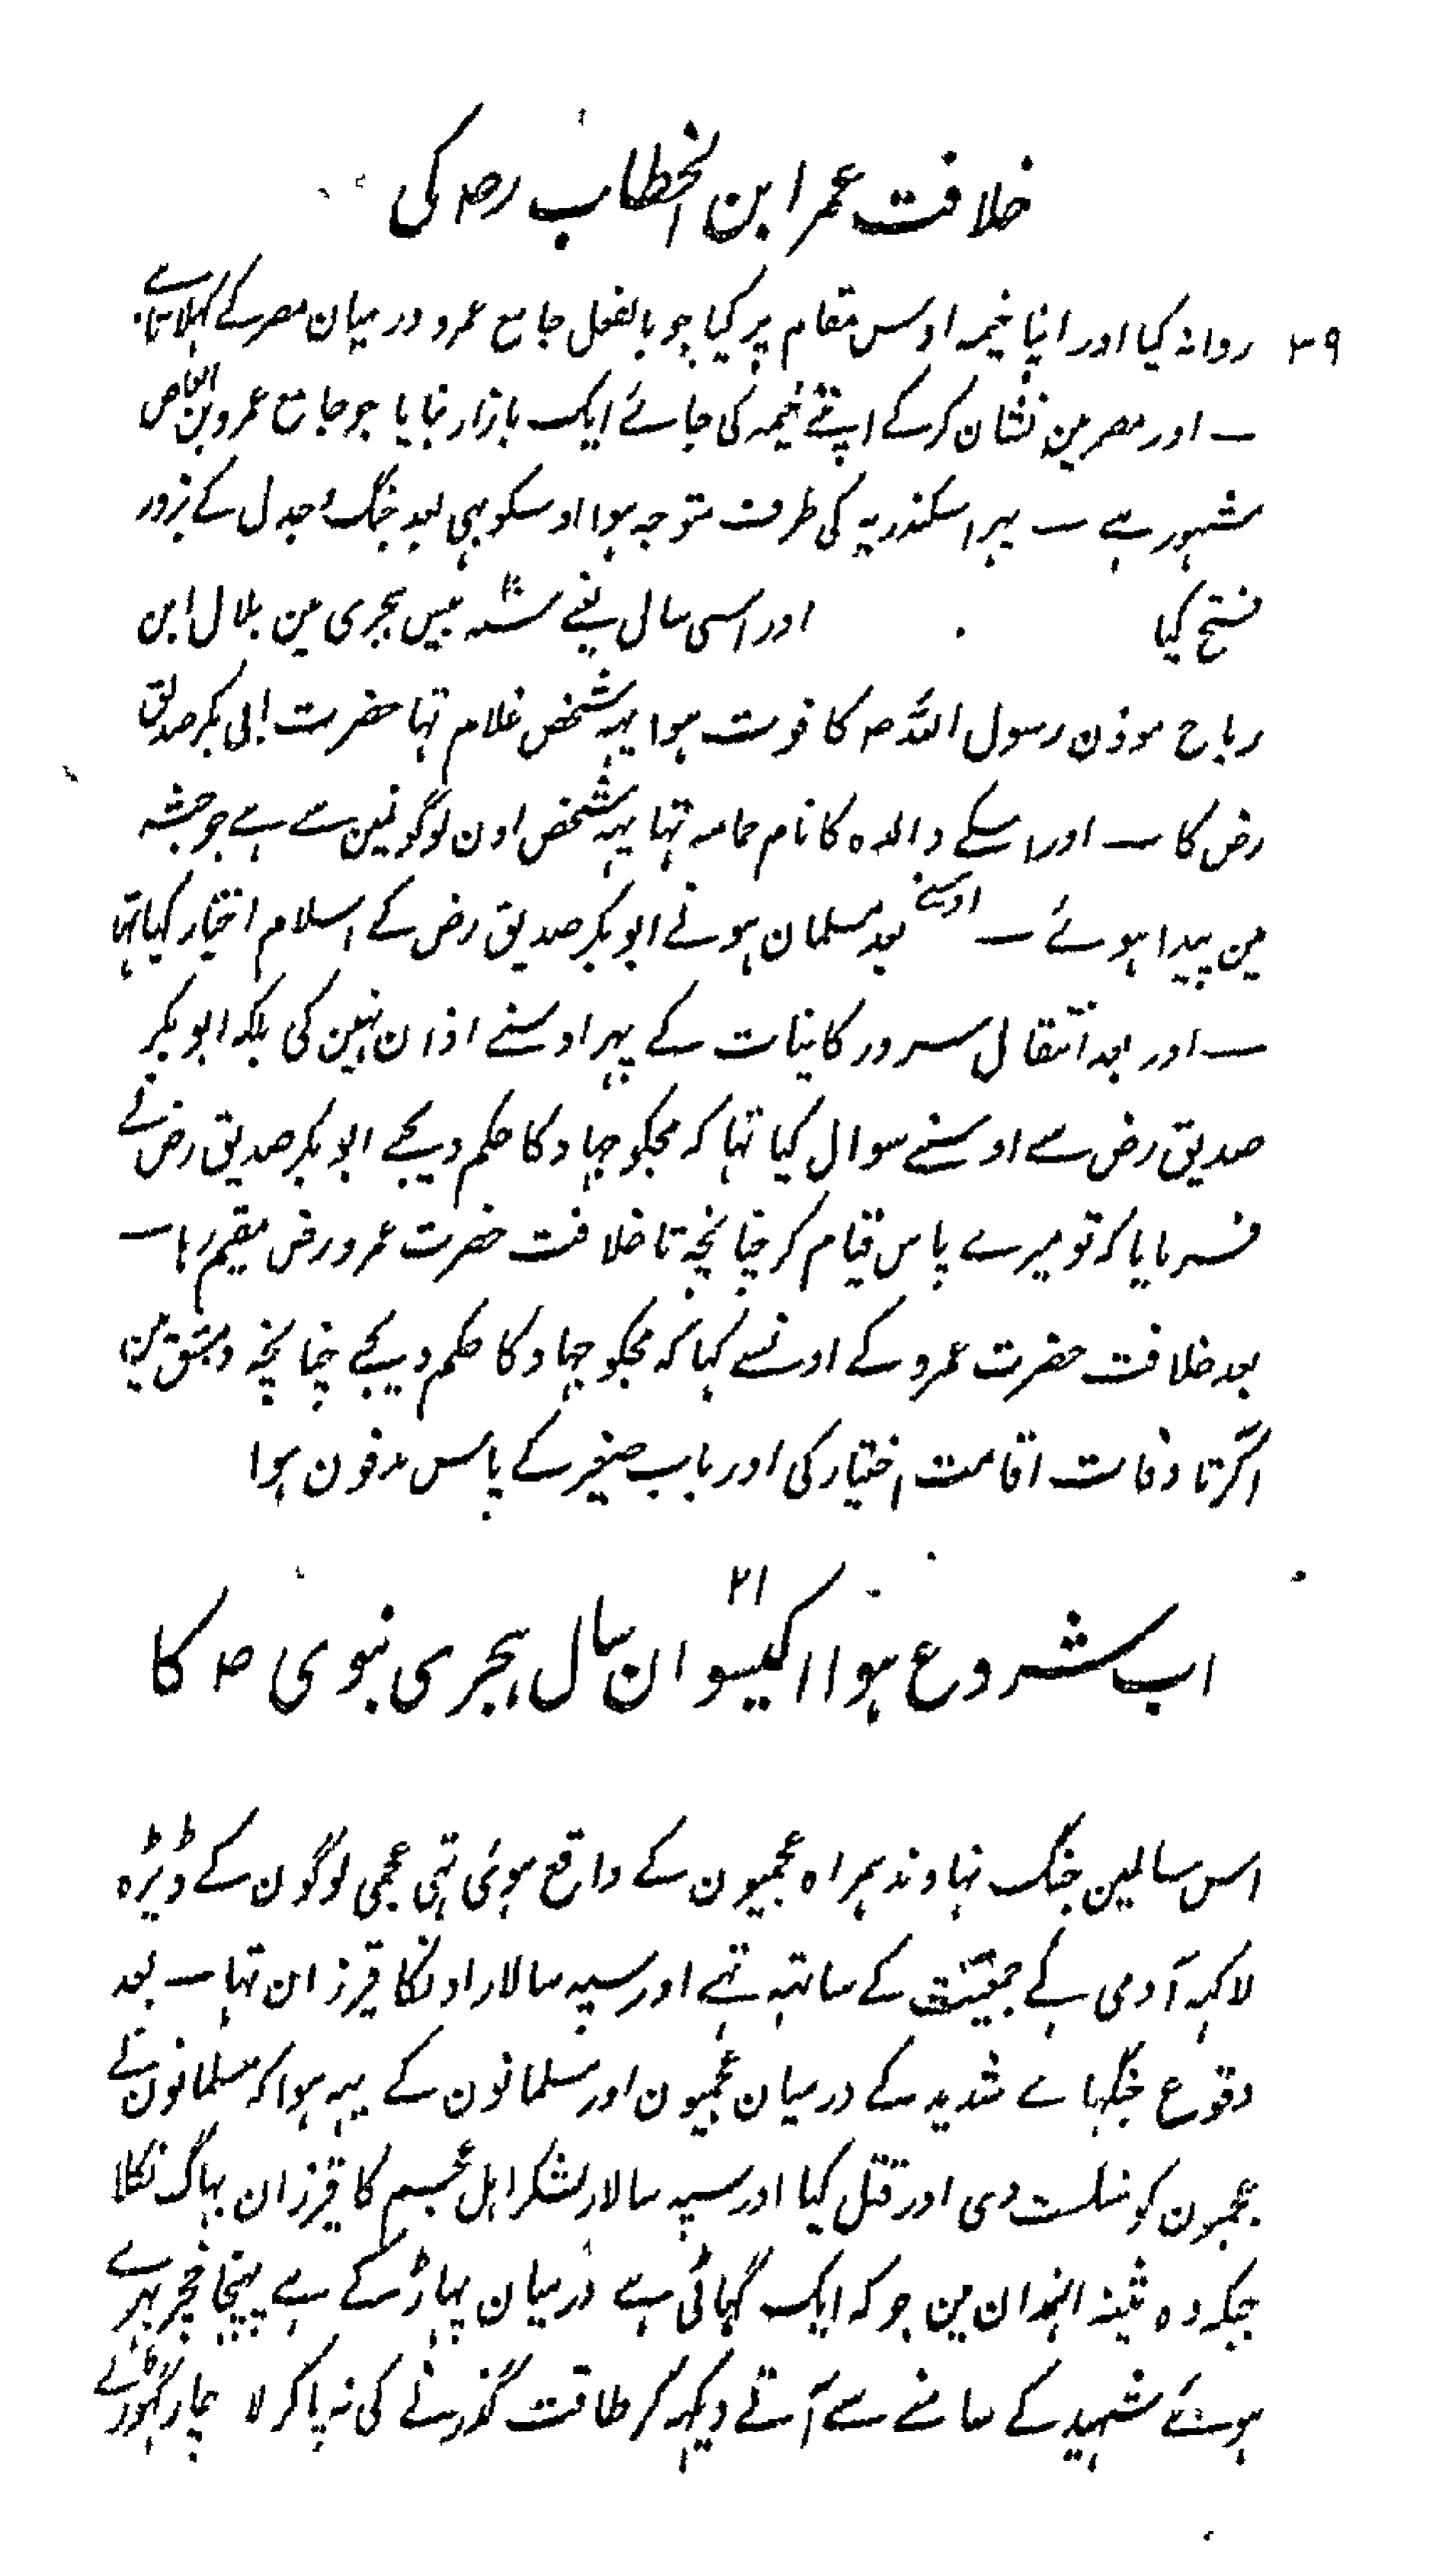 خلافت عمر ابن الخطاب رضہ کی
۳۹ روانہ کیا اور اپنا خیمہ اوس مقام پر کیا جو بالفعل جامع عمرو درمیان مصر کے کہلاتا ہے
۔ اور مصر مین نشان کرکے اپنے خیمہ کی جائے ایک بازار بنایا جو جامع عمرو بن العاص
مشہور ہے ۔ پہر اسکندریہ کی طرف متوجہ ہوا اوسکو بہی بعد جنگ و جدل کے بزور
فتح کیا اور اسی سال یعنے سنہ ۲۰ بیس ہجری مین بلال ابن
رباح موذن رسول اللہ ؐ کا فوت ہوا یہہ شخص غلام تہا حضرت ابی بکر صدیق
رض کا ۔ اور اسکے والدہ کا نام حمامہ تہا یہہ شخص اون لوگونمین سے ہے جو حبشہ
مین پیدا ہوئے ۔ اوسنے بعد مسلمان ہونے ابو بکر صدیق رض کے اسلام اختیار کیا تہا
۔ اور بعد انتقال سرور کاینات کے پہر اوسنے اذان نہین کی بلکہ ابو بکر
صدیق رض سے اوسنے سوال کیا تہا کہ مجکو جہاد کا حکم دیجے ابو بکر صدیق رض نے
فرمایا کہ تو میرے پاس قیام کر چنانچہ تا خلافت حضرت عمرو رض مقیم رہا ۔
بعد خلافت حضرت عمرو کے اونسے کہا کہ مجکو جہاد کا حکم دیجے چنانچہ دمشق مین
آکر تا وفات اقامت اختیار کی اور باب صغیر کے پاس مدفون ہوا
اب شروع ہوا اکیسوان ۲۱ سال ہجری نبوی ؐ کا
اس سالمین جنگ نہاوند ہمراہ عجمیون کے واقع ہوئی تہی عجمی لوگون کے ڈیڑہ
لاکہہ آدمی کے جمعیت کے ساتہہ تہے اور سپہ سالار اونکا قیرزان تہا ۔ بعد
وقوع جنگہاے شدید کے درمیان عجمیون اور مسلمانون کے یہہ ہوا کہ مسلمانون نے
عجمیون کو شکست دی اور قتل کیا اور سپہ سالار لشکر اہل عجم کا قیرزان بہاگ نکلا
جبکہ وہ ثنیۃ الہمدان مین جو کہ ایک گہاٹی ہے درمیان پہاڑ کے ہے پہنچا خچر بہرے
ہوئے شہد کے سامنے سے آتے دیکہہ کر طاقت گذرنے کی نہ پا کر لا چار گہوڑے